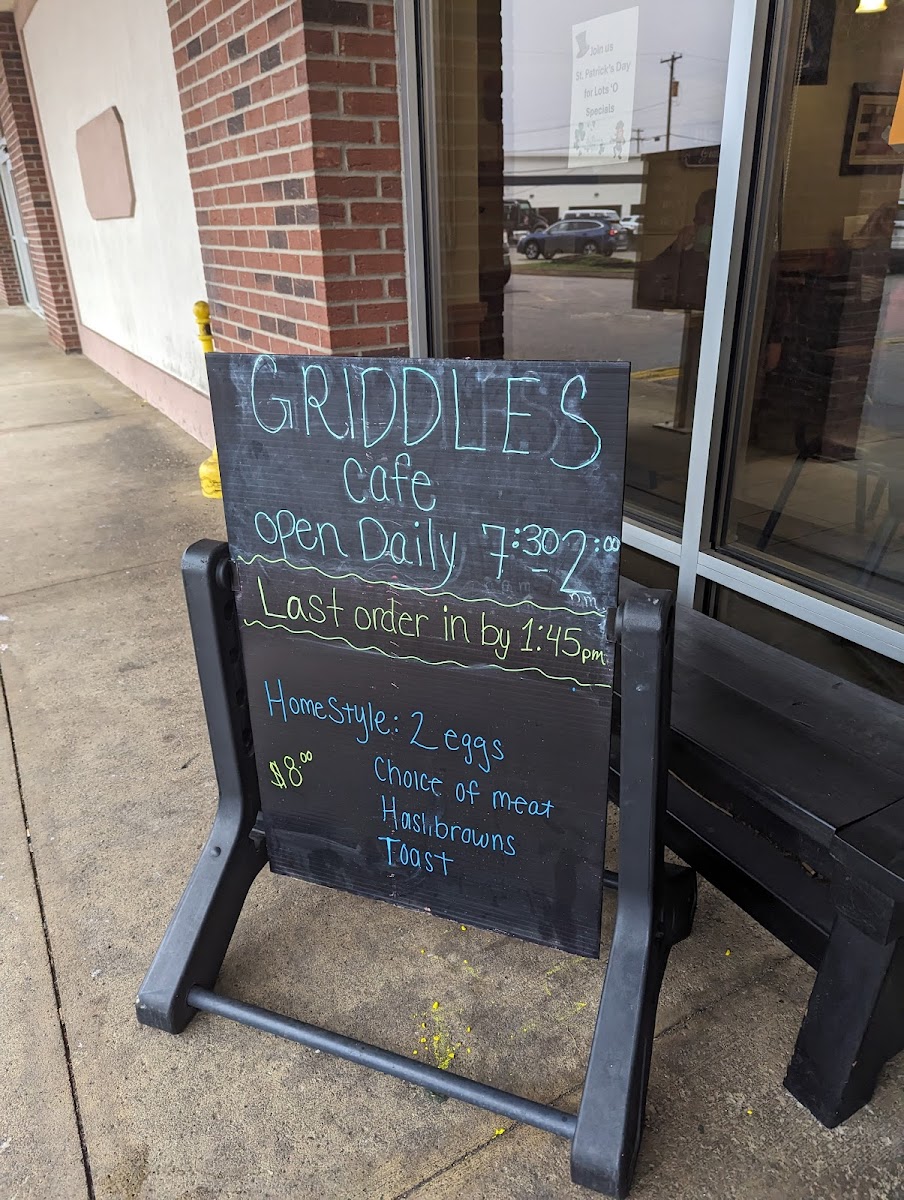 Join us
St. Patrick's Day
for Lots 'O
Specials
GRIDDLES
Cafe
open Daily 7:30-2:00
pm
Last order in by 1:45pm
HomeStyle: 2 eggs
$8.00
Choice of meat
Hashbrowns
Toast